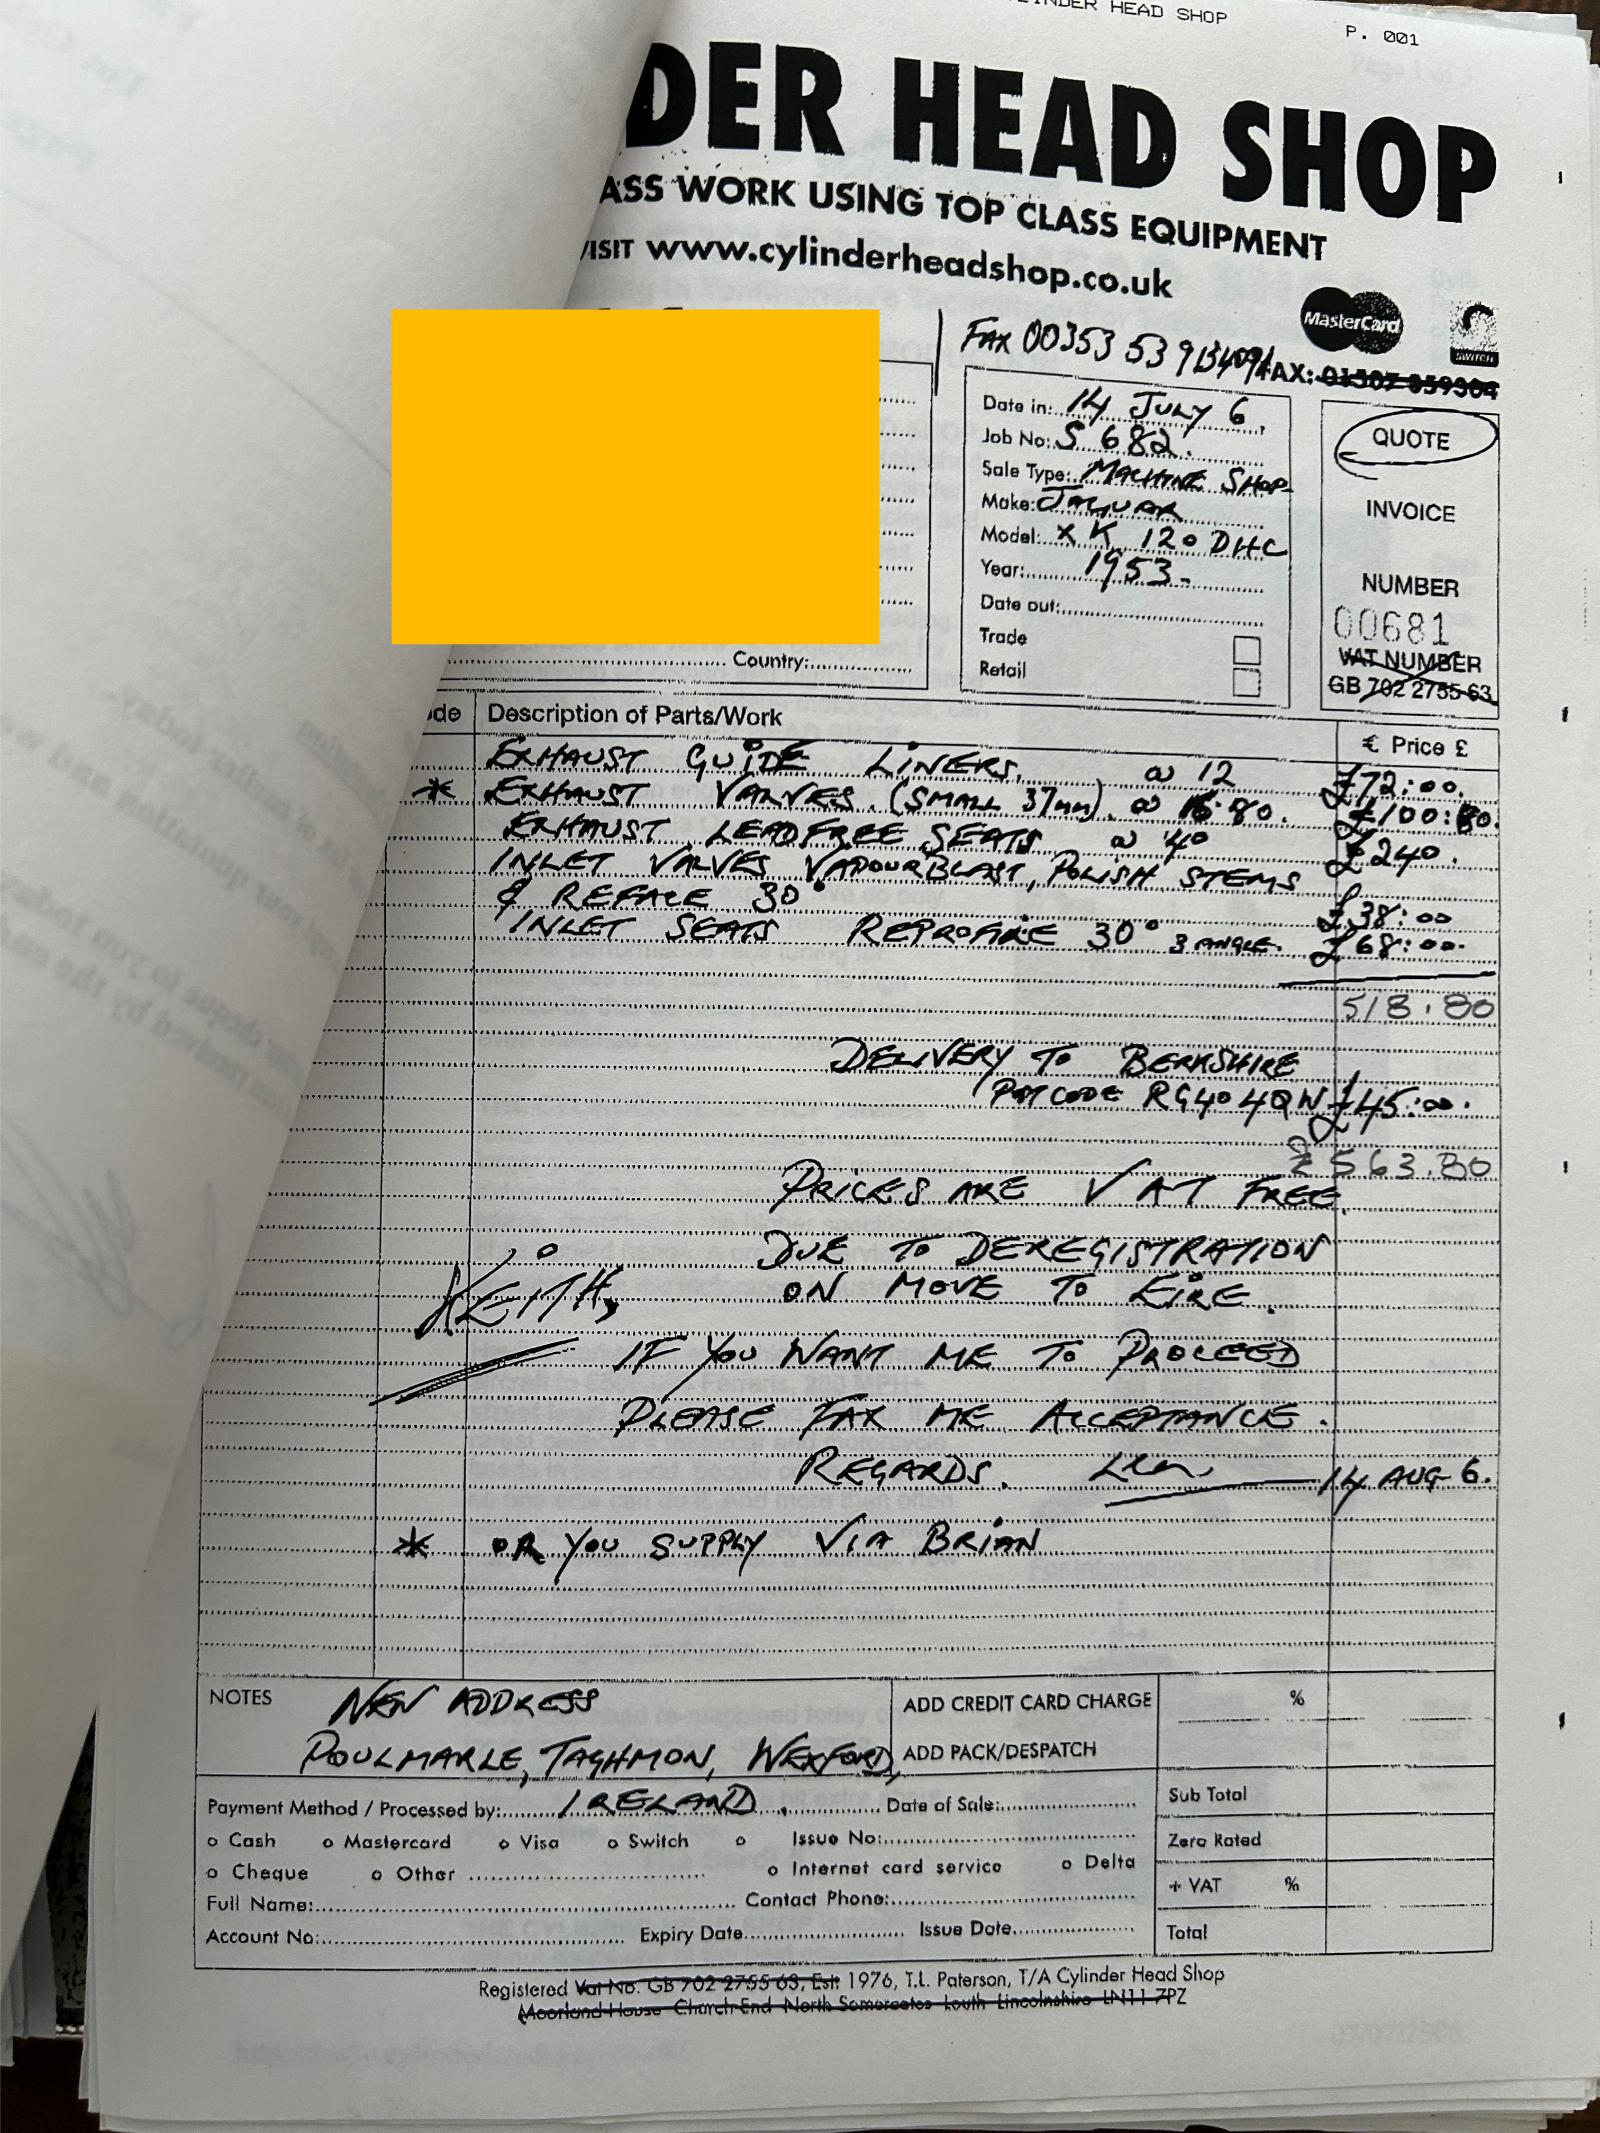 CYLINDER HEAD SHOP P. 001
DER HEAD SHOP
ASS WORK USING TOP CLASS EQUIPMENT
VISIT www.cylinderheadshop.co.uk
MasterCard
SWITCH
FAX 00353 53 FAX: 01507 359304
Date in: 14 JULY 6.
Job No: S 682.
Sale Type: MACHINE SHOP
Make: JAGUAR
Model: XK 120 DHC
Year: 1953-
Date out:
Trade
Retail
QUOTE
INVOICE
NUMBER
00681
VAT NUMBER
GB 702 2755 63
Country:
de Description of Parts/Work € Price £
EXHAUST GUIDE LINERS. @ 12 £72:00.
* EXHAUST VALVES. (SMALL 37mm). @ 16.80. £100:80.
EXHAUST LEADFREE SEATS @ 40 £240.
INLET VALVES VAPOURBLAST, POLISH STEMS
& REFACE 30° £38:00
INLET SEATS REPROFILE 30° 3 ANGLE. £68:00.
518.80
DELIVERY TO BERKSHIRE
POTCODE RG40 4QN £45:00.
£563.80
PRICES ARE VAT FREE
DUE TO DEREGISTRATION
ON MOVE TO EIRE.
KEITH,
IF YOU WANT ME TO PROCEED
PLEASE FAX ME ACCEPTANCE.
REGARDS. Len 14 AUG 6.
* OR YOU SUPPLY VIA BRIAN
NOTES NEW ADDRESS
POULMARLE, TAGHMON, WEXFORD,
IRELAND.
ADD CREDIT CARD CHARGE %
ADD PACK/DESPATCH
Payment Method / Processed by: Date of Sale: Sub Total
Cash Mastercard Visa Switch Issue No: Zero Rated
Cheque Other Internet card service Delta
Full Name: Contact Phone: + VAT %
Account No: Expiry Date Issue Date Total
Registered Vat No. GB 702 2755 63, Est. 1976, T.L. Paterson, T/A Cylinder Head Shop
Moorland House Church End North Somercotes Louth Lincolnshire LN11 7PZ